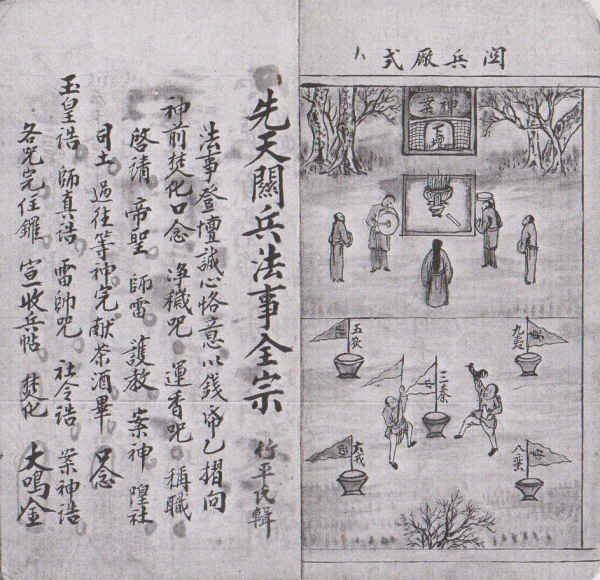 関兵厰式
神案
九夷
五狄
三秦
八蠻
六戎
先天關兵法事全宗 竹平氏輯
法事登壇誠心恪意以錢帋乙摺向
神前焚化口念 净穢咒 運香咒 稱職
啓請 帝聖 師雷 護教 案神 隍社
司土 過往等神完献茶酒畢 口念
玉皇誥 師真誥 雷帥咒 社令誥 案神誥
各咒完任鑼 宣收兵帖 焚化 大鳴金